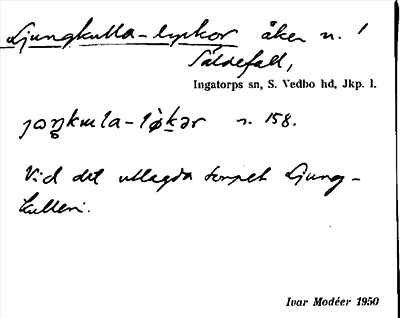 Ljungkulla-lyckor åker n. 1
Säldefall,
Ingatorps sn, S. Vedbo hd, Jkp. l.
n. 158.
Vid det utlagda torpet Ljung-
kullen.
Ivar Modéer 1950